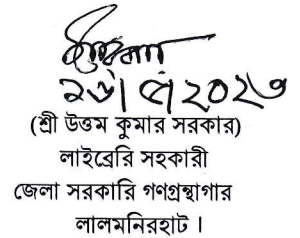 (শ্রী উত্তম কুমার সরকার)
লাইব্রেরি সহকারী
জেলা সরকারি গণগ্রন্থাগার
লালমনিরহাট।